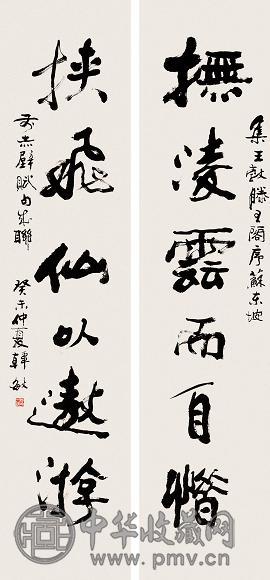 集王勃滕王閣序蘇東坡
撫凌雲而自惜
挾飛仙以遨游
前赤壁賦句成聯
癸未仲夏韓敏
中华收藏网
www.pmv.cn